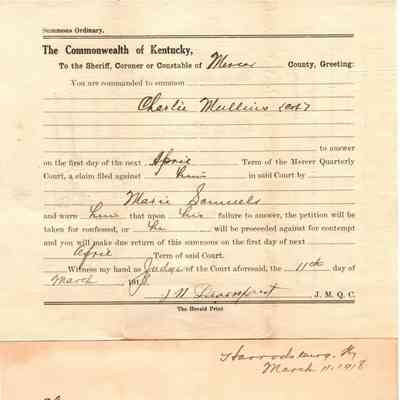 Summons Ordinary.
The Commonwealth of Kentucky,
To the Sheriff, Coroner or Constable of Mercer County, Greeting:
You are commanded to summon
Charlie Mullins
to answer
on the first day of the next April Term of the Mercer Quarterly
Court, a claim filed against him in said Court by
Marie Samuels
and warn him that upon his failure to answer, the petition will be
taken for confessed, or he will be proceeded against for contempt
and you will make due return of this summons on the first day of next
April Term of said Court.
Witness my hand as Judge of the Court aforesaid, the 11th day of
March 1918.
J. M. Q. C.
The Herald Print
Harrodsburg, Ky
March 11, 1918